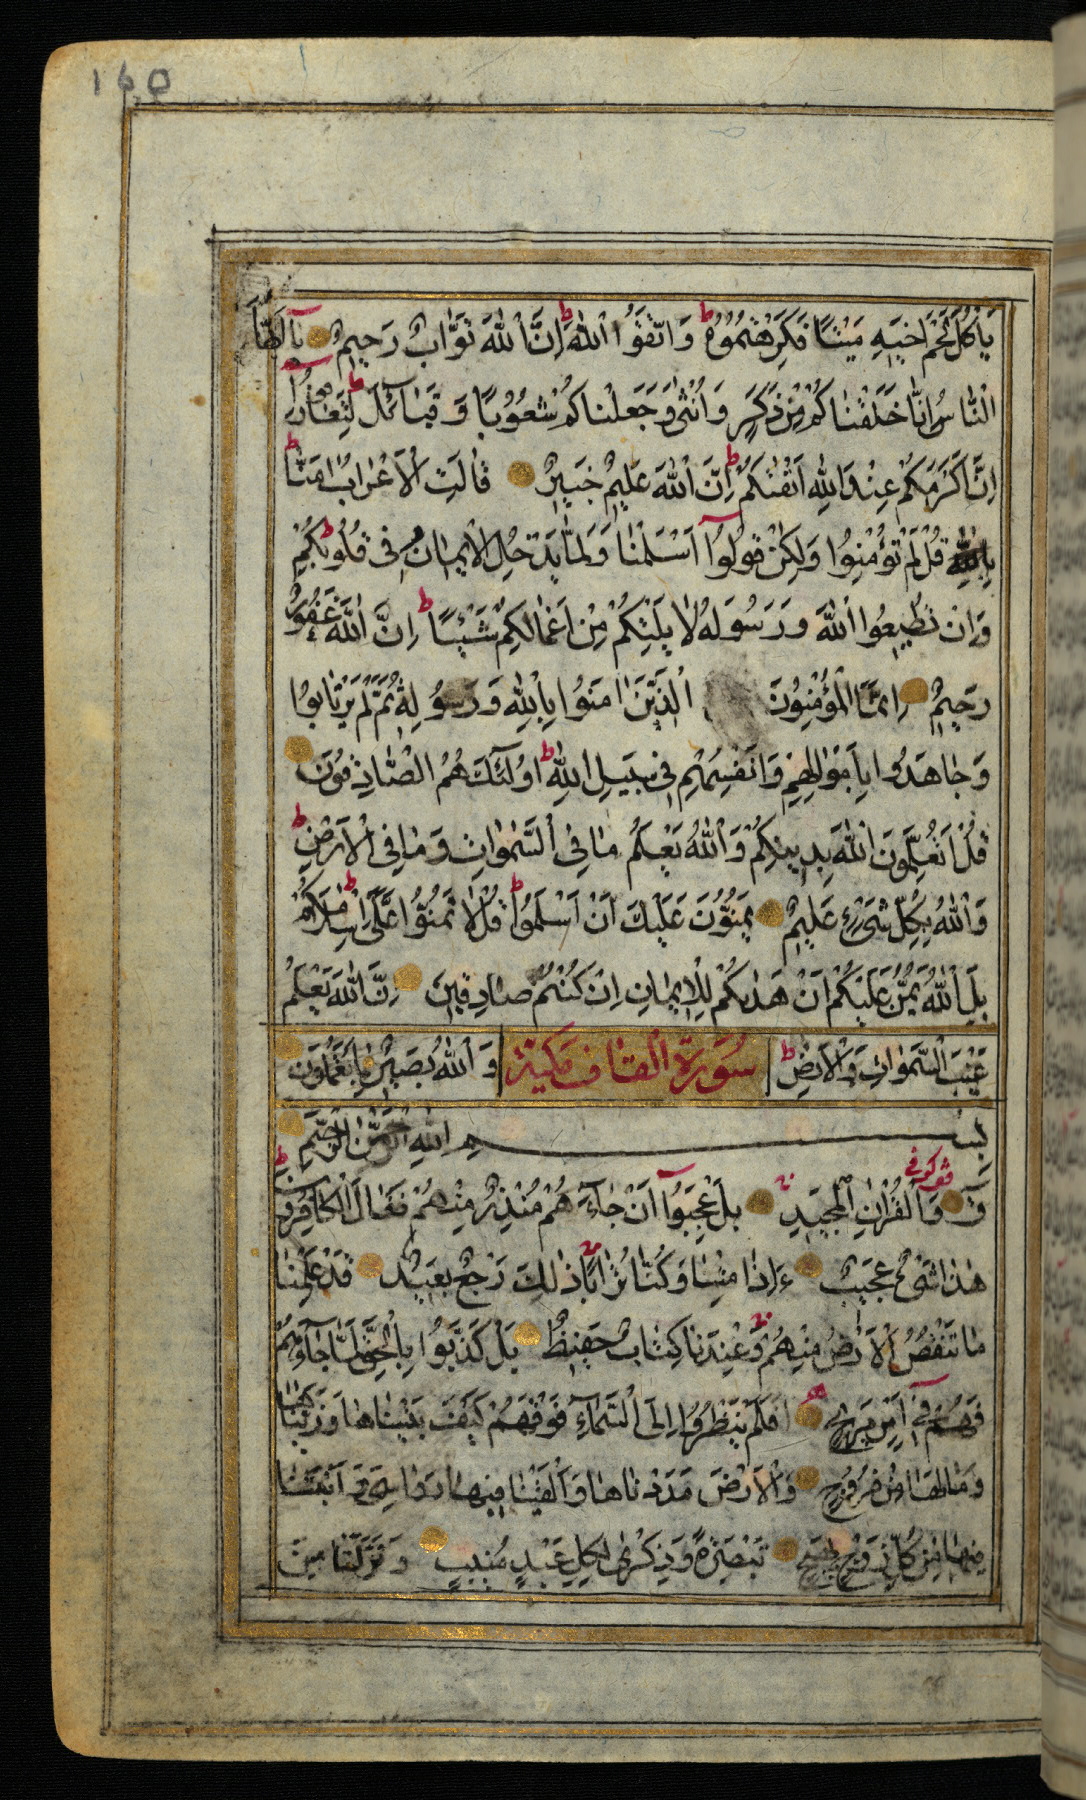 160
يَأْكُلَ لَحْمَ اَخِيهِ مَيْتًا فَكَرِهْتُمُوهُ ط وَاتَّقُوا اللّٰهَ ط اِنَّ اللّٰهَ تَوَّابٌ رَحِيمٌ يَآ اَيُّهَا
النَّاسُ اِنَّا خَلَقْنَاكُمْ مِنْ ذَكَرٍ وَاُنْثٰى وَجَعَلْنَاكُمْ شُعُوبًا وَقَبَآئِلَ لِتَعَارَفُوا ط
اِنَّ اَكْرَمَكُمْ عِنْدَ اللّٰهِ اَتْقٰىكُمْ ط اِنَّ اللّٰهَ عَلِيمٌ خَبِيرٌ قَالَتِ الْاَعْرَابُ اٰمَنَّا ط
بِاللّٰهِ قُلْ لَمْ تُؤْمِنُوا وَلٰكِنْ قُولُوآ اَسْلَمْنَا وَلَمَّا يَدْخُلِ الْاِيمَانُ فِى قُلُوبِكُمْ ط
وَاِنْ تُطِيعُوا اللّٰهَ وَرَسُولَهُ لَا يَلِتْكُمْ مِنْ اَعْمَالِكُمْ شَيْئًا ط اِنَّ اللّٰهَ غَفُورٌ
رَحِيمٌ اِنَّمَا الْمُؤْمِنُونَ الَّذِينَ اٰمَنُوا بِاللّٰهِ وَرَسُولِهِ ثُمَّ لَمْ يَرْتَابُوا
وَجَاهَدُوا بِاَمْوَالِهِمْ وَاَنْفُسِهِمْ فِى سَبِيلِ اللّٰهِ ط اُولٰٓئِكَ هُمُ الصَّادِقُونَ
قُلْ اَتُعَلِّمُونَ اللّٰهَ بِدِينِكُمْ وَاللّٰهُ يَعْلَمُ مَا فِى السَّمٰوَاتِ وَمَا فِى الْاَرْضِ ط
وَاللّٰهُ بِكُلِّ شَىْءٍ عَلِيمٌ يَمُنُّونَ عَلَيْكَ اَنْ اَسْلَمُوا ط قُلْ لَا تَمُنُّوا عَلَىَّ اِسْلَامَكُمْ ط
بَلِ اللّٰهُ يَمُنُّ عَلَيْكُمْ اَنْ هَدٰىكُمْ لِلْاِيمَانِ اِنْ كُنْتُمْ صَادِقِينَ اِنَّ اللّٰهَ يَعْلَمُ
غَيْبَ السَّمٰوَاتِ وَالْاَرْضِ ط سُورَةُ الْقاف مَكِّيَّة وَاللّٰهُ بَصِيرٌ بِمَا تَعْمَلُونَ
بِسْمِ اللّٰهِ الرَّحْمٰنِ الرَّحِيمِ
قٓ وَالْقُرْاٰنِ الْمَجِيدِ بَلْ عَجِبُوآ اَنْ جَآءَهُمْ مُنْذِرٌ مِنْهُمْ فَقَالَ الْكَافِرُونَ
هٰذَا شَىْءٌ عَجِيبٌ ءَاِذَا مِتْنَا وَكُنَّا تُرَابًا ذٰلِكَ رَجْعٌ بَعِيدٌ قَدْ عَلِمْنَا
مَا تَنْقُصُ الْاَرْضُ مِنْهُمْ وَعِنْدَنَا كِتَابٌ حَفِيظٌ بَلْ كَذَّبُوا بِالْحَقِّ لَمَّا جَآءَهُمْ
فَهُمْ فِىٓ اَمْرٍ مَرِيجٍ اَفَلَمْ يَنْظُرُوا اِلَى السَّمَآءِ فَوْقَهُمْ كَيْفَ بَنَيْنَاهَا وَزَيَّنَّاهَا
وَمَا لَهَا مِنْ فُرُوجٍ وَالْاَرْضَ مَدَدْنَاهَا وَاَلْقَيْنَا فِيهَا رَوَاسِىَ وَاَنْبَتْنَا
فِيهَا مِنْ كُلِّ زَوْجٍ بَهِيجٍ تَبْصِرَةً وَذِكْرٰى لِكُلِّ عَبْدٍ مُنِيبٍ وَنَزَّلْنَا مِنَ